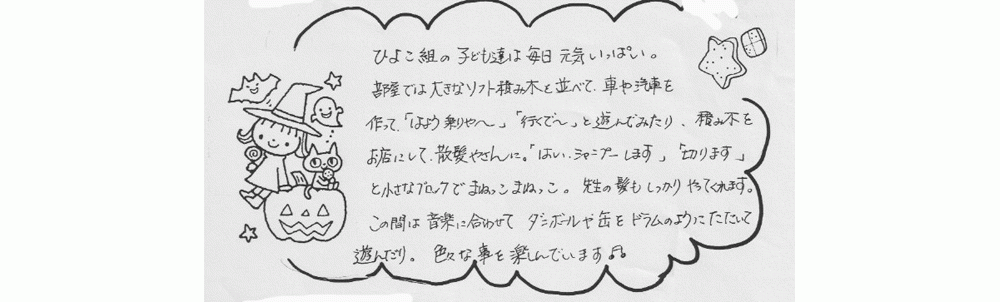 ひよこ組の子ども達は毎日元気いっぱい。
部屋では大きなソフト積み木を並べて、車や汽車を
作って、「はよう乗りや～」「行くで～」と遊んでみたり、積み木を
お店にして、散髪やさんに。「はい、シャンプーします」「切ります」
と小さなブロックでまねっこまねっこ。先生の髪もしっかりやってくれます。
この間は音楽に合わせてダンボールや缶をドラムのようにたたいて
遊んだり。色々な事を楽しんでいます♫